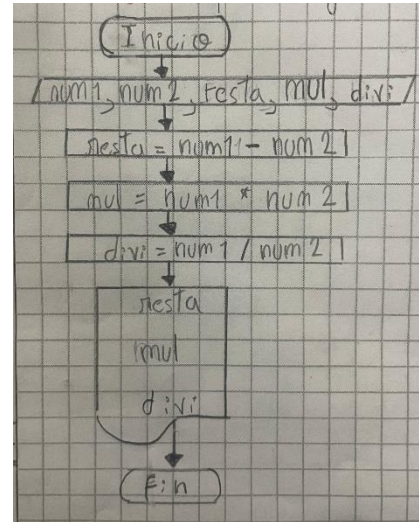 Inicio
num1, num2, resta, mul, divi
resta = num1 - num 2
mul = num1 * num 2
divi = num1 / num 2
resta
mul
divi
Fin